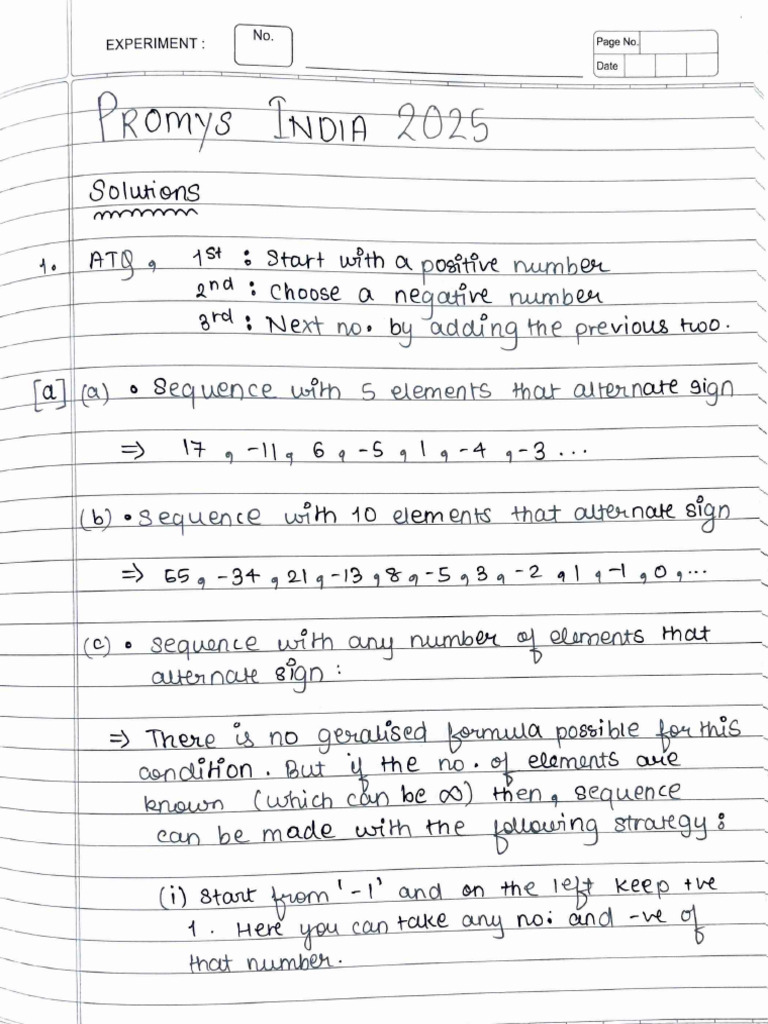 EXPERIMENT :
No.
Page No.
Date
PROMYS INDIA 2025
Solutions
1. ATQ, 1st : Start with a positive number
2nd : Choose a negative number
3rd : Next no. by adding the previous two.
[a] (a) • Sequence with 5 elements that alternate sign
⇒ 17, -11, 6, -5, 1, -4, -3 ...
(b) • Sequence with 10 elements that alternate sign
⇒ 55, -34, 21, -13, 8, -5, 3, -2, 1, -1, 0, ...
(c) • sequence with any number of elements that
alternate sign :
⇒ There is no geralised formula possible for this
condition. But if the no. of elements are
known (which can be ∞) then, sequence
can be made with the following strategy:
(i) Start from '-1' and on the left keep +ve
1. Here you can take any no: and -ve of
that number.